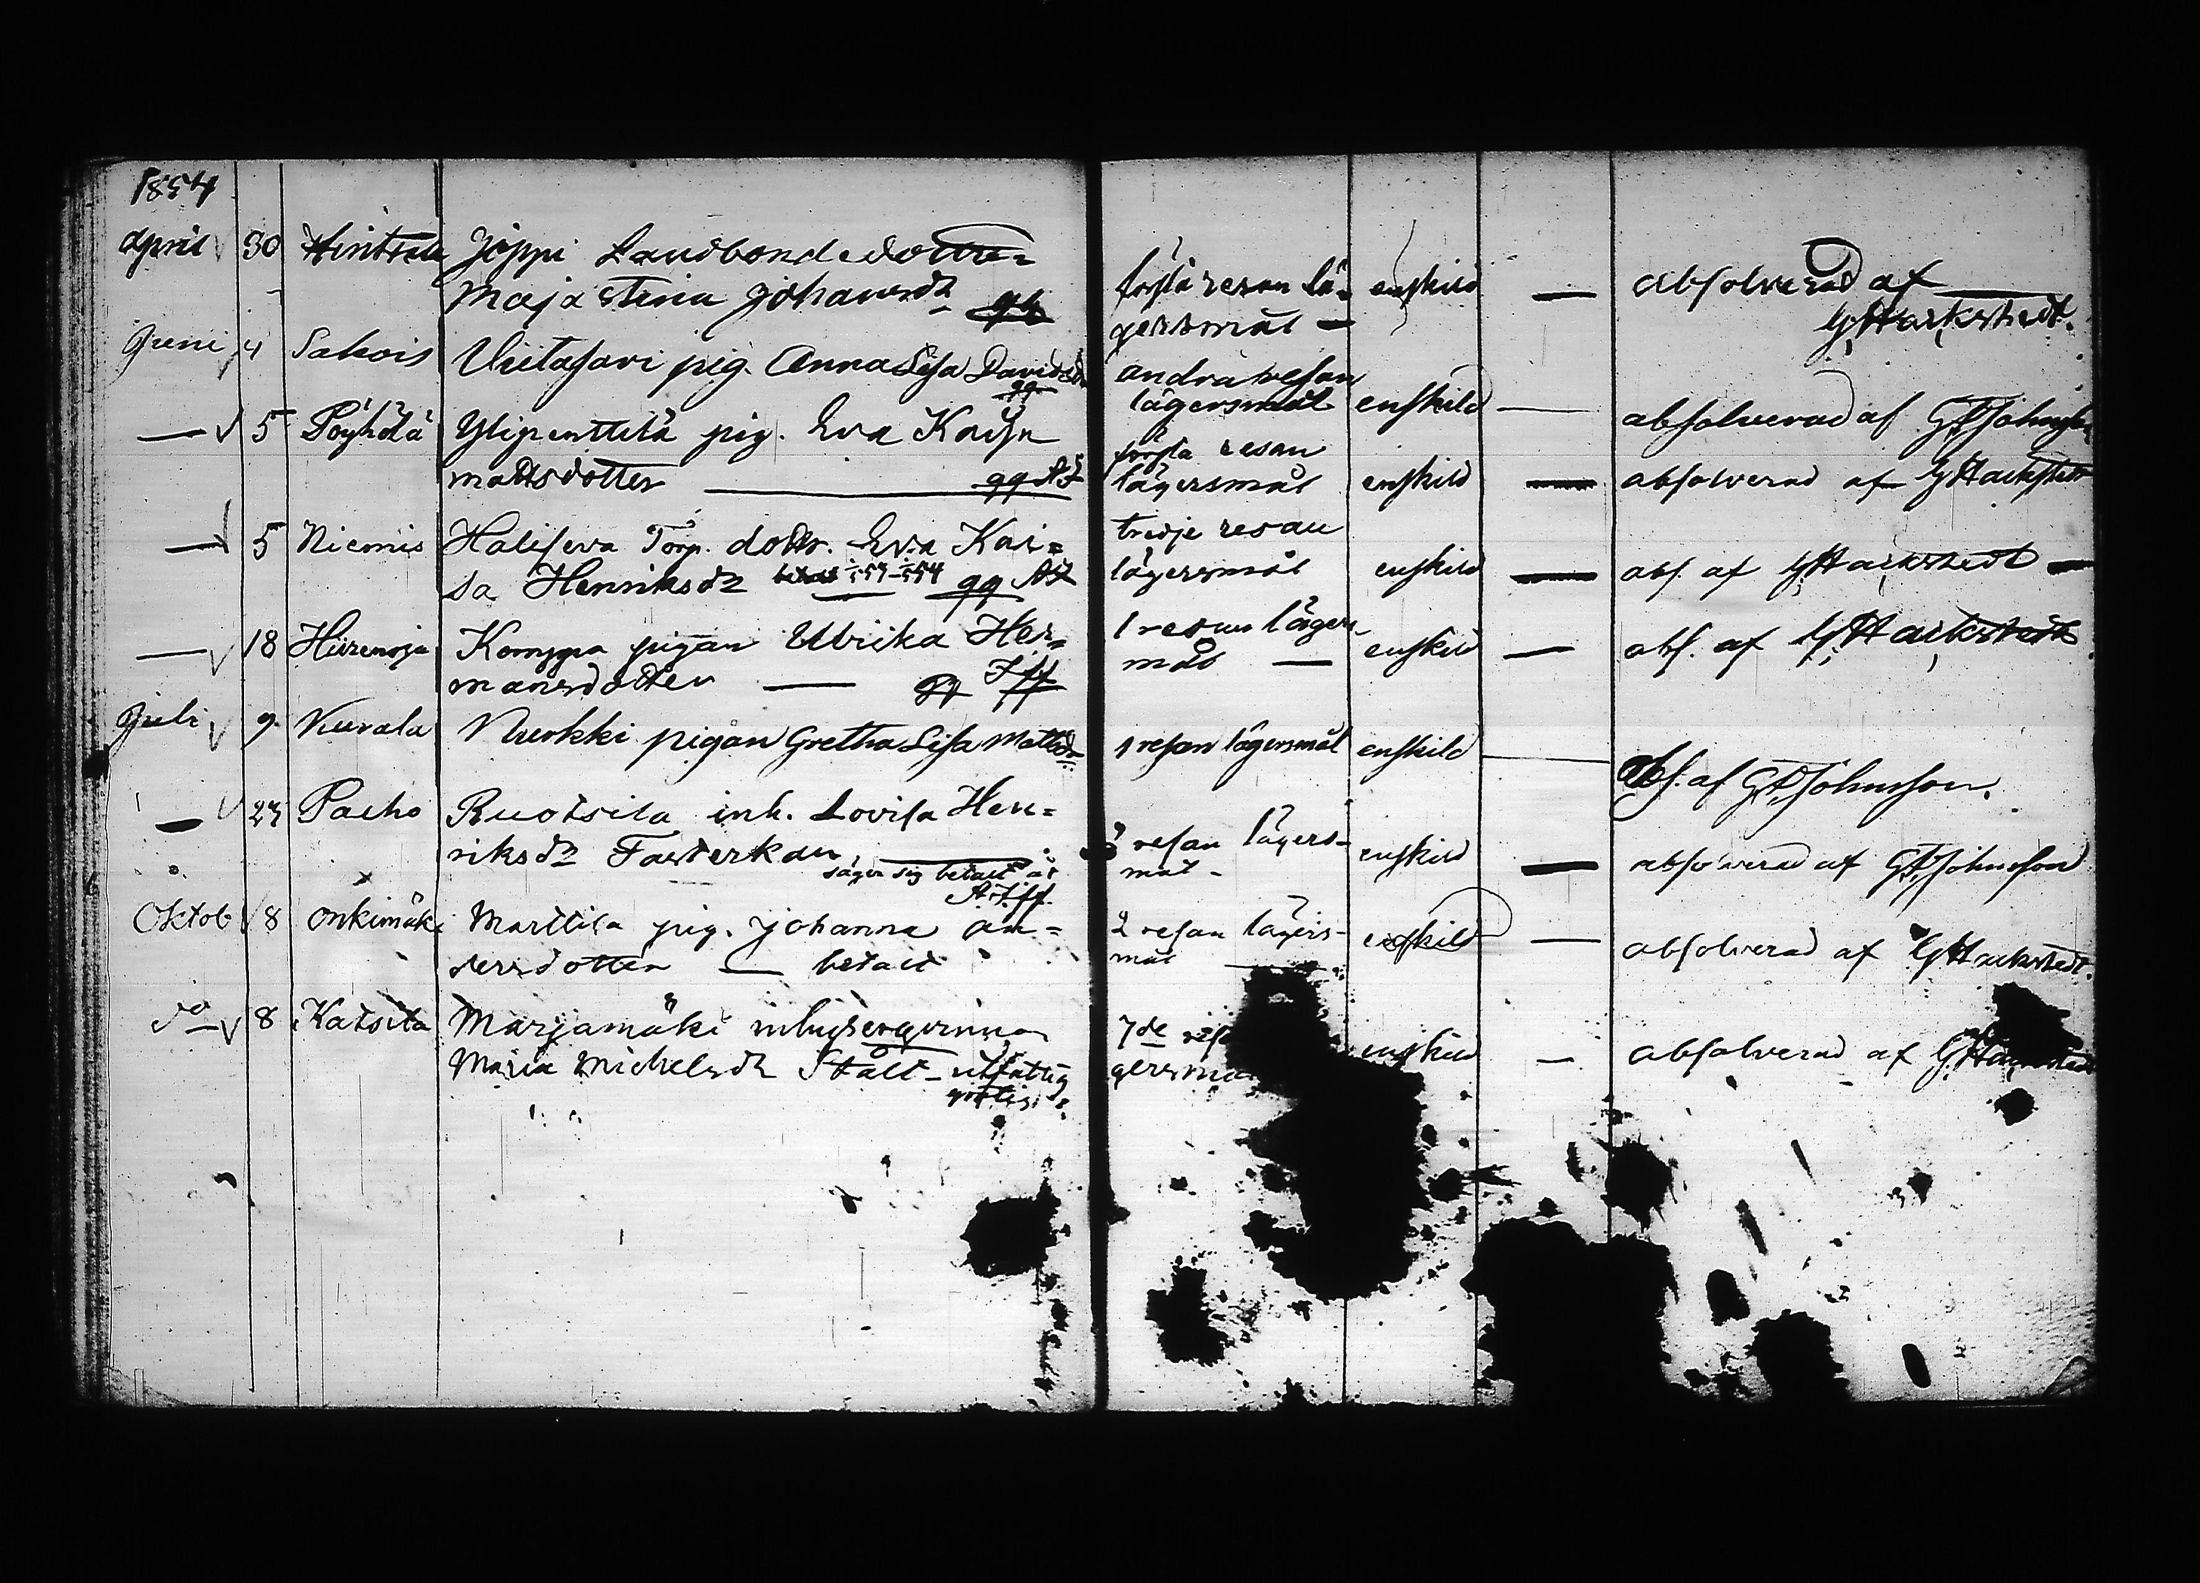 1854
April 30 Hintsala Jöppi Landbondedotter
Maja Stina Johansdr
första resan lä-
gersmål — enskild — absolverad af
G. Hackstedt.
Juni 4 Sakois Viitasari pig. Anna Lisa Davidsdr
andra resan
lägersmål enskild — absolverad af G A Johnsson
— 5 Pöyhölä Ylipenttilä pig. Eva Kajsa
mattsdotter — qq
första resan
lägersmål enskild — absolverad af G Hackstedt
— 5 Niemis Halifeva Torp. dottr. Eva Kai=
sa Henriksdr betalt qq
tredje resan
lägersmål enskild — abs. af G Hackstedt —
— 18 Hiirenoja Komppa pigan Ulrika Her=
mansdotter —
1 resan lägers
mål — enskild — abs. af G Hackstedt
Juli 9 Kurala Nurkki pigan Gretha Lisa Mattsdr
1 resan lägersmål enskild — abs. af G A Johnsson.
— 23 Pacho Ruotsila inh. Lovisa Hen=
riksdr Fasterkan,
säger sig betalt
3 resan lägers-
mål - enskild — absolverad af G A Johnsson
Oktob 8 Onkimäki Marttila pig. Johanna An=
dersdotter — betalt
2 resan lägers-
mål — enskild — absolverad af G Hackstedt.
do — 8 Katsila Marjamäki inhysesqvinna
Maria Michelsdr Stålt - utfattig
gratis
7de
enskild — absolverad af G Hackstedt